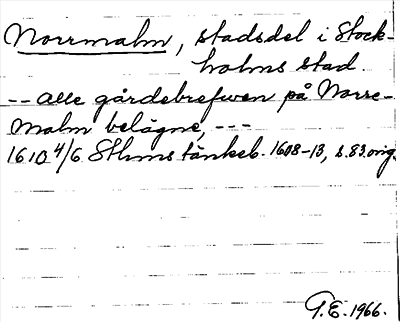 Norrmalm, stadsdel i Stock-
holms stad.
-- alle gårdebrefwen på Norre-
malm belägne, ---
1610 4/6 Sthms tänkeb. 1608-13, s. 83 orig.
G.E. 1966.